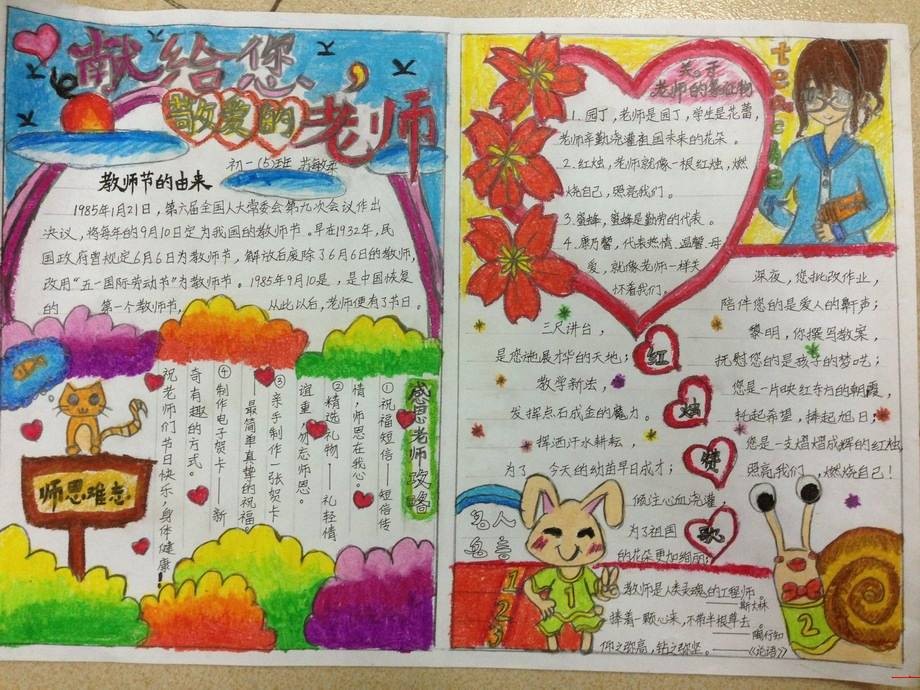 献给您、
敬爱的老师
初一(5)班
教师节的由来
1985年1月21日，第六届全国人大常委会第九次会议作出
决议，将每年的9月10日定为我国的教师节。早在1932年，民
国政府曾规定6月6日为教师节，解放后废除了6月6日的教师，
改用“五一国际劳动节”为教师节。1985年9月10是，是中国恢复
的 第一个教师节， 从此以后，老师便有了节日。
感恩老师攻略
①祝福短信——短信传
情，师恩在我心。
②精选礼物——礼轻情
谊重，勿忘师恩。
③亲手制作一张贺卡
——最简单真挚的祝福
④制作电子贺卡——新
奇有趣的方式。
祝老师们节日快乐、身体健康！
师恩难忘
关于
老师的象征物
1.园丁，老师是园丁，学生是花蕾，
老师辛勤浇灌祖国未来的花朵。
2.红烛，老师就像一根红烛，燃
烧自己，照亮我们。
3.蜜蜂，蜜蜂是勤劳的代表。
4.康乃馨，代表热情 温馨 母
爱，就像老师一样关
怀着我们。
红烛赞歌
三尺讲台，
是您施展才华的天地；
教学新法，
发挥点石成金的魔力。
挥洒汗水耕耘，
为了 今天的幼苗早日成才；
倾注心血浇灌，
为了祖国
的花朵更加绚丽；
深夜，您批改作业，
陪伴您的是爱人的鼾声；
黎明，你撰写教案，
抚慰您的是孩子的梦呓；
您是一片映红东方的朝霞，
托起希望，捧起旭日；
您是一支熠熠成辉的红烛，
照亮我们，燃烧自己！
名人
名言
1
2
3
1
2
教师是人类灵魂的工程师。
——斯大林
捧着一颗心来，不带半根草去。
——陶行知
仰之弥高，钻之弥坚。——《论语》